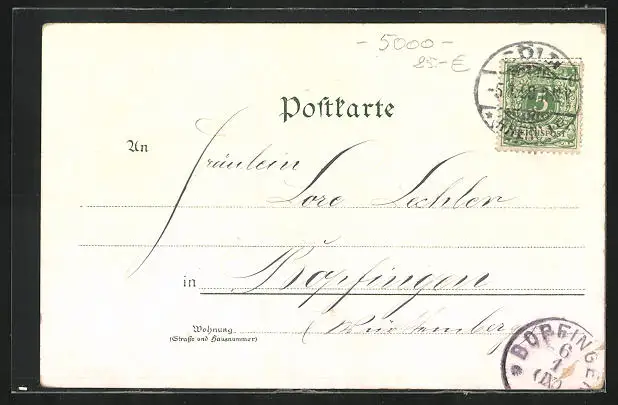 - 5000 -
25.- €
CÖLN
5
REICHSPOST
Postkarte
An
Fräulein
Lore Lechler
in Bopfingen
Wohnung
(Straße und Hausnummer)
(Württemberg)
BOPFINGEN
6
1